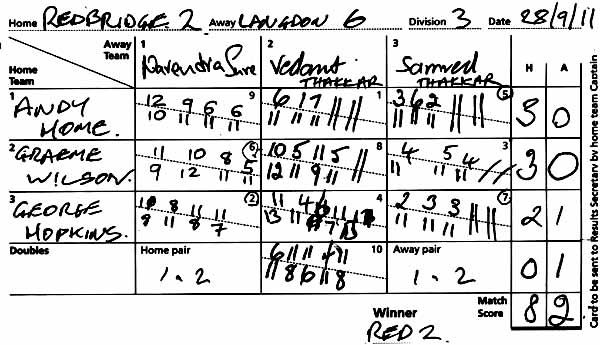 Home REDBRIDGE. 2 Away LANGDON 6 Division 3 Date 28/9/11
Away Team
Home Team
1 Narendra
2 Vedant THAKKAR
3 Samved THAKKAR
H A
1 ANDY HOME.
12 9 6 6 9
10 11 11 11
6 1 7 1
11 11 11
3 6 2 5
11 11 11
3 0
2 GRAEME WILSON.
11 10 8 6
9 12 11 5 11
10 5 11 5 8
12 11 9 11
4 5 4 3
11 11 11
3 0
3 GEORGE HOPKINS.
10 8 11 11 2
8 11 8 7
11 4
13
2 3 3 7
11 11 11
2 1
Doubles
Home pair
1.2
10
11 8 6 11 8
Away pair
1.2
0 1
Winner
RED 2.
Match Score
8 2
Card to be sent to Results Secretary by home team Captain